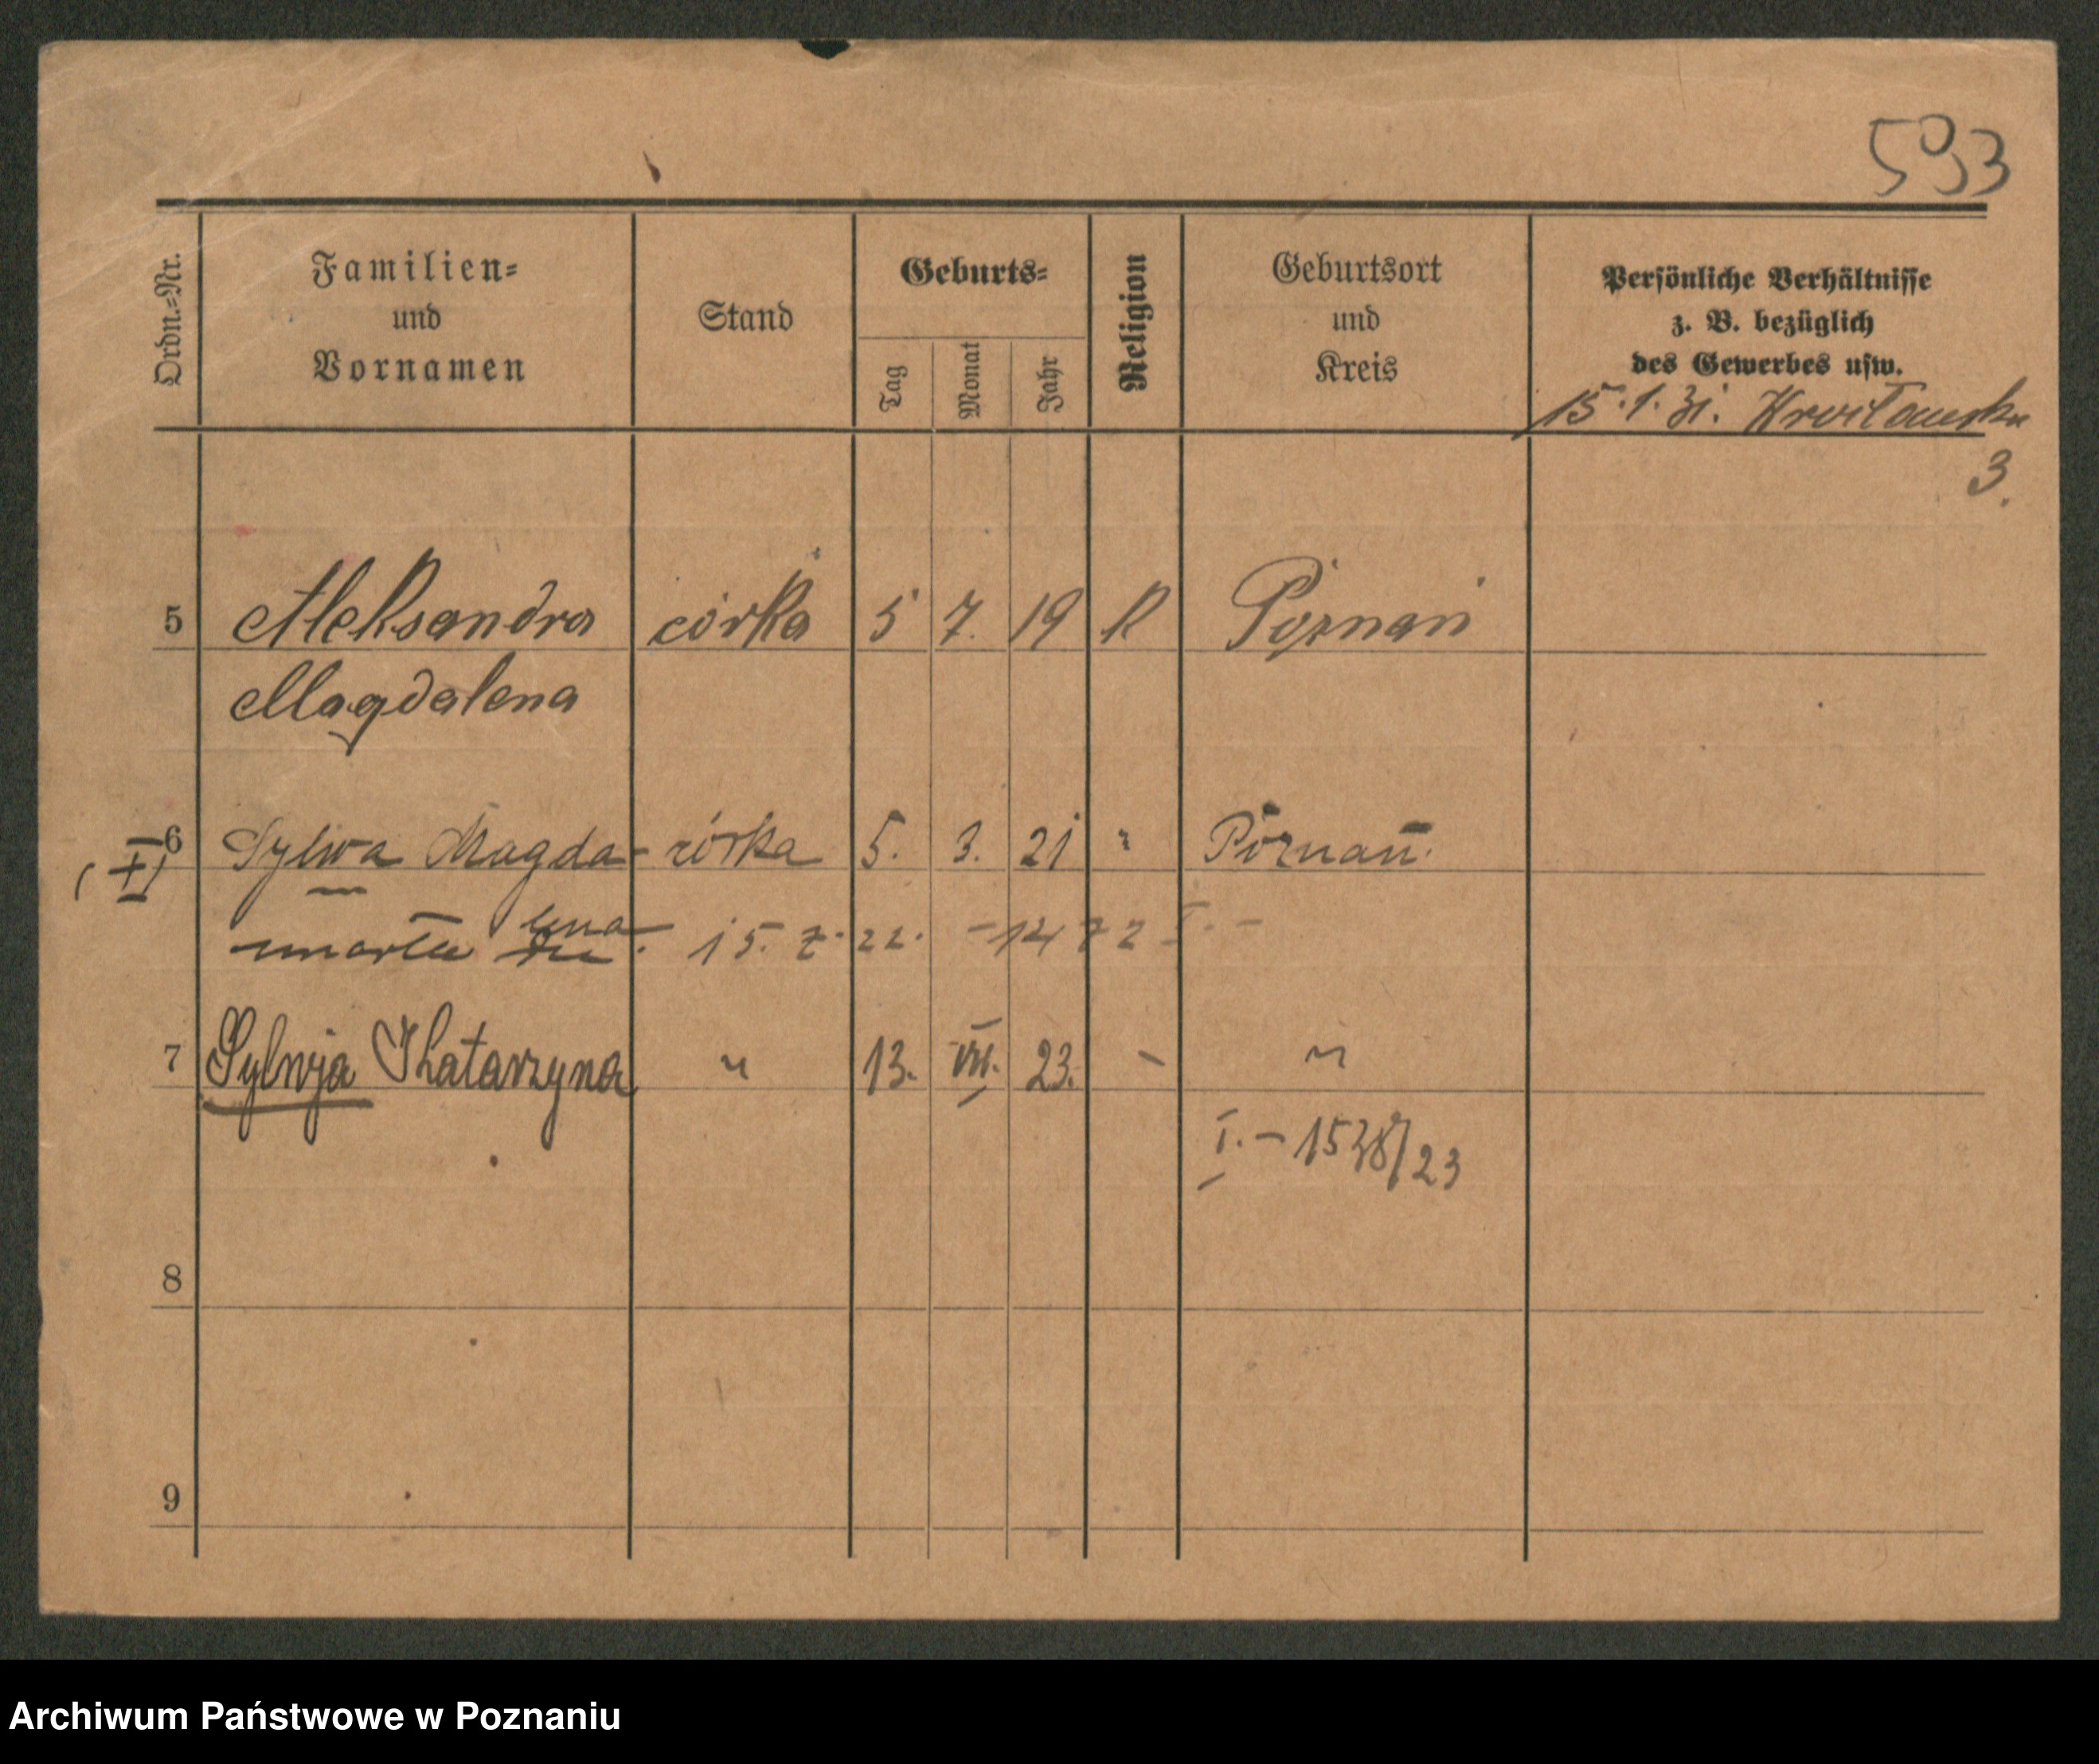 593
Ordn.=Nr.
Familien=
und
Vornamen
Stand
Geburts=
Tag
Monat
Jahr
Religion
Geburtsort
und
Kreis
Persönliche Verhältnisse
z. B. bezüglich
des Gewerbes usw.
15.1.31.
3.
5 Aleksandra córka 5 7. 19 R Poznań
Magdalena
6 Sylwa Magda- córka 5. 3. 21 " Poznań.
lena
umarła 15. 2. 22.
7 Sylwja Katarzyna " 13. VII. 23. - "
I. - 1538/23
8
9
Archiwum Państwowe w Poznaniu